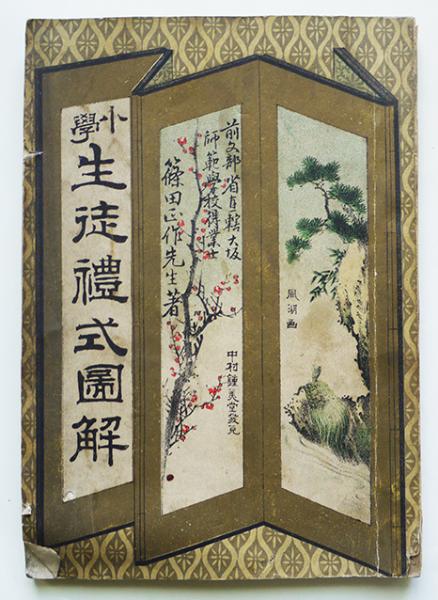 小學
生徒禮式圖解
前文部省直轄大坂
師範學校得業士
篠田正作先生著
中村鍾美堂發兌
鳳湖画